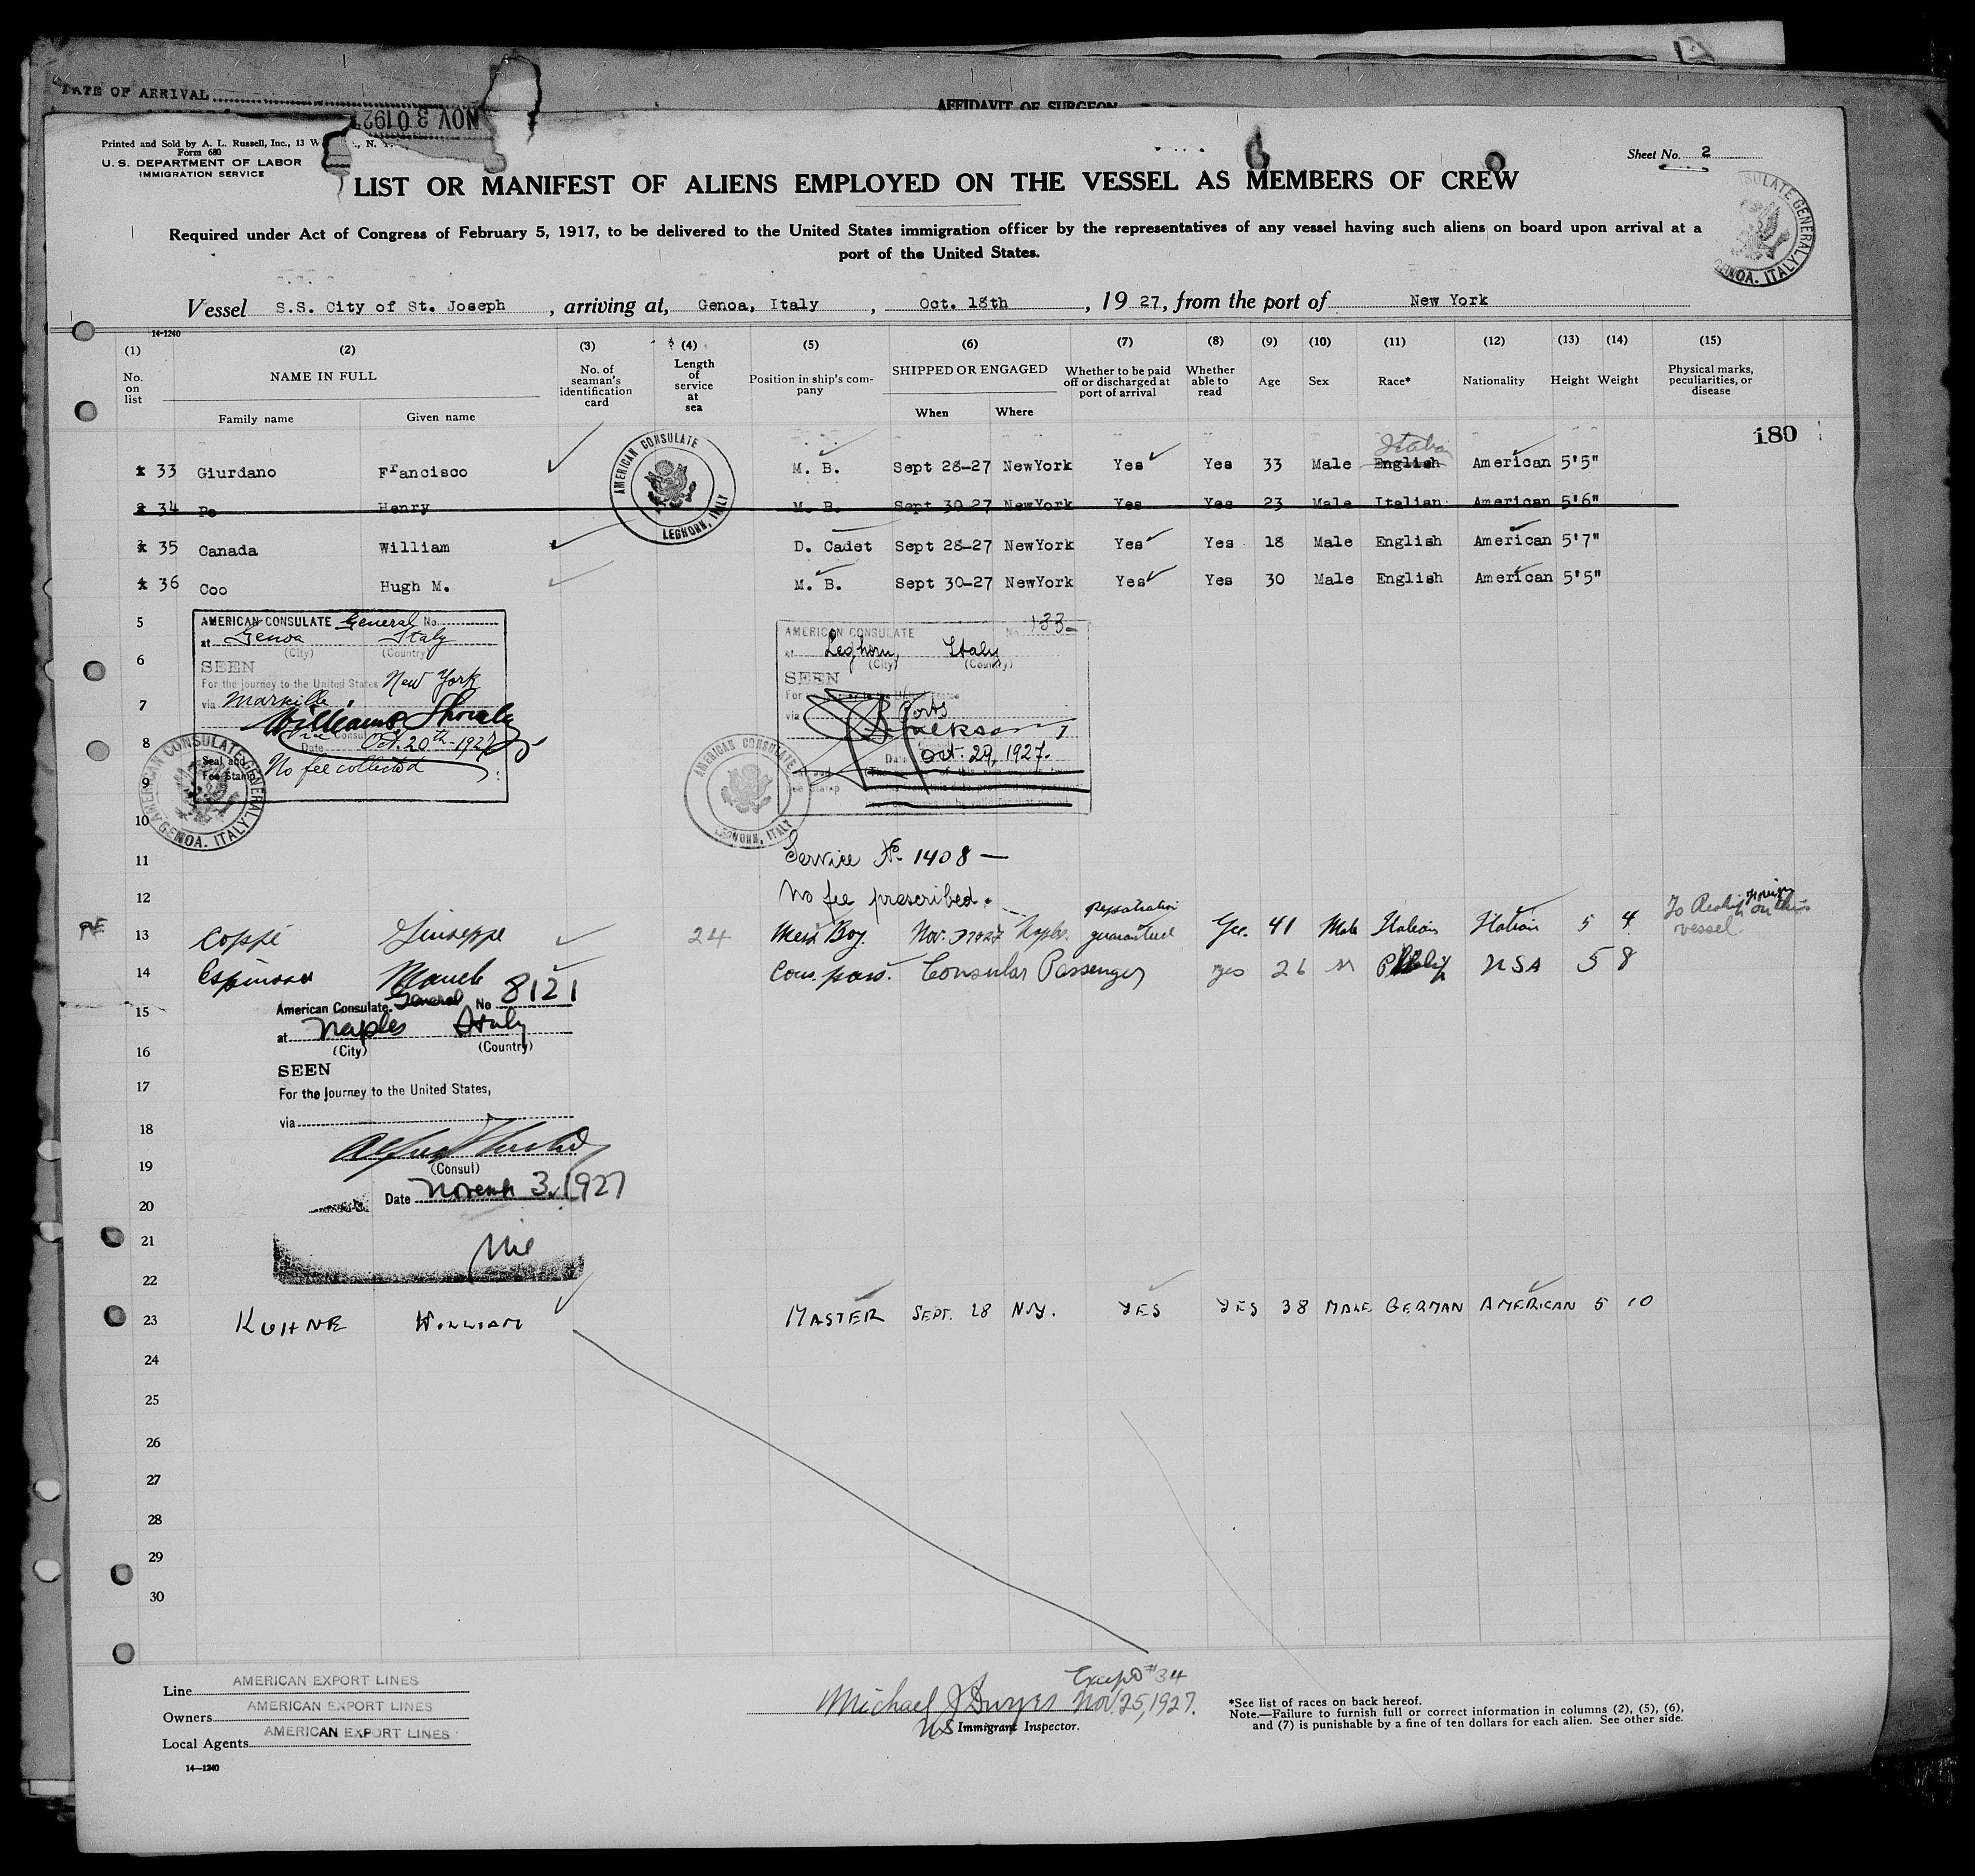 DATE OF ARRIVAL
NOV 30 192
AFFIDAVIT OF SURGEON
Printed and Sold by A. L. Russell, Inc., 13 W , N. Y.
Form 680
U. S. DEPARTMENT OF LABOR
IMMIGRATION SERVICE
Sheet No. 2
LIST OR MANIFEST OF ALIENS EMPLOYED ON THE VESSEL AS MEMBERS OF CREW
CONSULATE GENERAL GENOA. ITALY
Required under Act of Congress of February 5, 1917, to be delivered to the United States immigration officer by the representatives of any vessel having such aliens on board upon arrival at a
port of the United States.
Vessel S.S. City of St. Joseph, arriving at, Genoa, Italy, Oct. 18th, 19 27, from the port of New York
14-1240
(1) (2) (3) (4) (5) (6) (7) (8) (9) (10) (11) (12) (13) (14) (15)
No. on list
NAME IN FULL
Family name Given name
No. of seaman's identification card
Length of service at sea
Position in ship's company
SHIPPED OR ENGAGED
When Where
Whether to be paid off or discharged at port of arrival
Whether able to read
Age Sex Race* Nationality Height Weight
Physical marks, peculiarities, or disease
180
33 Giurdano Francisco M. B. Sept 28-27 NewYork Yes Yes 33 Male English Italian American 5'5"
34 Pe Henry M. B. Sept 30 27 NewYork Yes Yes 23 Male Italian American 5'6"
AMERICAN CONSULATE LEGHORN, ITALY
35 Canada William D. Cadet Sept 28-27 NewYork Yes Yes 18 Male English American 5'7"
36 Coo Hugh M. M. B. Sept 30-27 NewYork Yes Yes 30 Male English American 5'5"
5
6
7
8
9
10
11
12
AMERICAN CONSULATE General No.
at Genoa Italy
(City) (Country)
SEEN
For the journey to the United States New York
via Marseille
Consul
Date Oct. 20th 1927
Seal and
Fee Stamp
No fee collected
AMERICAN CONSULATE GENERAL GENOA. ITALY
AMERICAN CONSULATE No. 133-
at Leghorn, Italy
(City) (Country)
SEEN
For
via Ports
Date Oct. 29, 1927.
AMERICAN CONSULATE LEGHORN, ITALY
Service No. 1408 —
No fee prescribed.
13 Coppe Giuseppe 24 Mess Boy. Nov. 3 1927 Naples. Repatriation guaranteed Yes. 41 Male Italian Italian 5 4 To Reship Foreign on this vessel
14 Espinosa Manuel Con. pass. Consular Passenger yes 26 M USA 5 8
15
16
17
18
19
20
21
22
American Consulate General No 8121
at Naples Italy
(City) (Country)
SEEN
For the Journey to the United States,
via
(Consul)
Date Novemb 3, 1927
23 KUHNE WILLIAM MASTER SEPT. 28 N.Y. YES YES 38 MALE GERMAN AMERICAN 5 10
24
25
26
27
28
29
30
Line AMERICAN EXPORT LINES
Owners AMERICAN EXPORT LINES
Local Agents AMERICAN EXPORT LINES
14-1240
Except #34
Michael J Dwyer Nov. 25, 1927.
US Immigrant Inspector.
*See list of races on back hereof.
Note.—Failure to furnish full or correct information in columns (2), (5), (6),
and (7) is punishable by a fine of ten dollars for each alien. See other side.